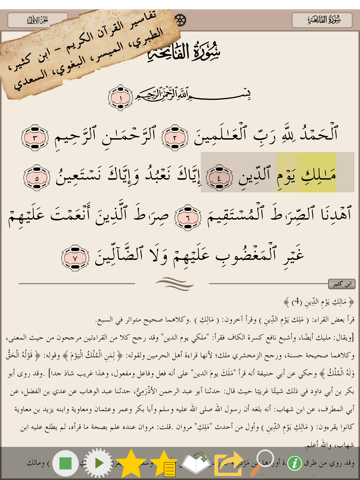 سُورَةُ الفَاتِحَةِ
الجزء الأول
تفاسير القرآن الكريم - ابن كثير،
الطبري، الميسر، البغوي، السعدي
سُورَةُ الفَاتِحَةِ
بِسْمِ ٱللَّهِ ٱلرَّحْمَٰنِ ٱلرَّحِيمِ ١
ٱلْحَمْدُ لِلَّهِ رَبِّ ٱلْعَـٰلَمِينَ ٢ ٱلرَّحْمَـٰنِ ٱلرَّحِيمِ ٣
مَـٰلِكِ يَوْمِ ٱلدِّينِ ٤ إِيَّاكَ نَعْبُدُ وَإِيَّاكَ نَسْتَعِينُ ٥
ٱهْدِنَا ٱلصِّرَٰطَ ٱلْمُسْتَقِيمَ ٦ صِرَٰطَ ٱلَّذِينَ أَنْعَمْتَ عَلَيْهِمْ
غَيْرِ ٱلْمَغْضُوبِ عَلَيْهِمْ وَلَا ٱلضَّآلِّينَ ٧
ابن كثير
﴿ مَالِكِ يَوْمِ الدِّينِ (4) ﴾
قرأ بعض القراء: ( مَلِك يَوْمِ الدِّينِ ) وقرأ آخرون: ( مَالِكِ ) . وكلاهما صحيح متواتر في السبع.
[ويقال: مليك أيضًا، وأشبع نافع كسرة الكاف فقرأ: "ملكي يوم الدين" وقد رجح كلا من القراءتين مرجحون من حيث المعنى،
وكلاهما صحيحة حسنة، ورجح الزمخشري ملك؛ لأنها قراءة أهل الحرمين ولقوله: ﴿ لِمَنِ الْمُلْكُ الْيَوْمَ ﴾ وقوله: ﴿ قَوْلُهُ الْحَقُّ
وَلَهُ الْمُلْكُ ﴾ وحكي عن أبي حنيفة أنه قرأ "مَلَكَ يومَ الدين" على أنه فعل وفاعل ومفعول، وهذا غريب شاذ جدا]. وقد روى أبو
بكر بن أبي داود في ذلك شيئًا غريبًا حيث قال: حدثنا أبو عبد الرحمن الأذْرَمِيُّ، حدثنا عبد الوهاب عن عدي بن الفضل، عن
أبي المطرف، عن ابن شهاب: أنه بلغه أن رسول الله صلى الله عليه وسلم وأبا بكر وعمر وعثمان ومعاوية وابنه يزيد بن معاوية
كانوا يقرءون: ( مَالِكِ يَوْمِ الدِّينِ ) وأول من أحدث "مَلِكِ" مروان. قلت: مروان عنده علم بصحة ما قرأه، لم يطلع عليه ابن
شهاب، والله أعلم.
وقد روي من طرق